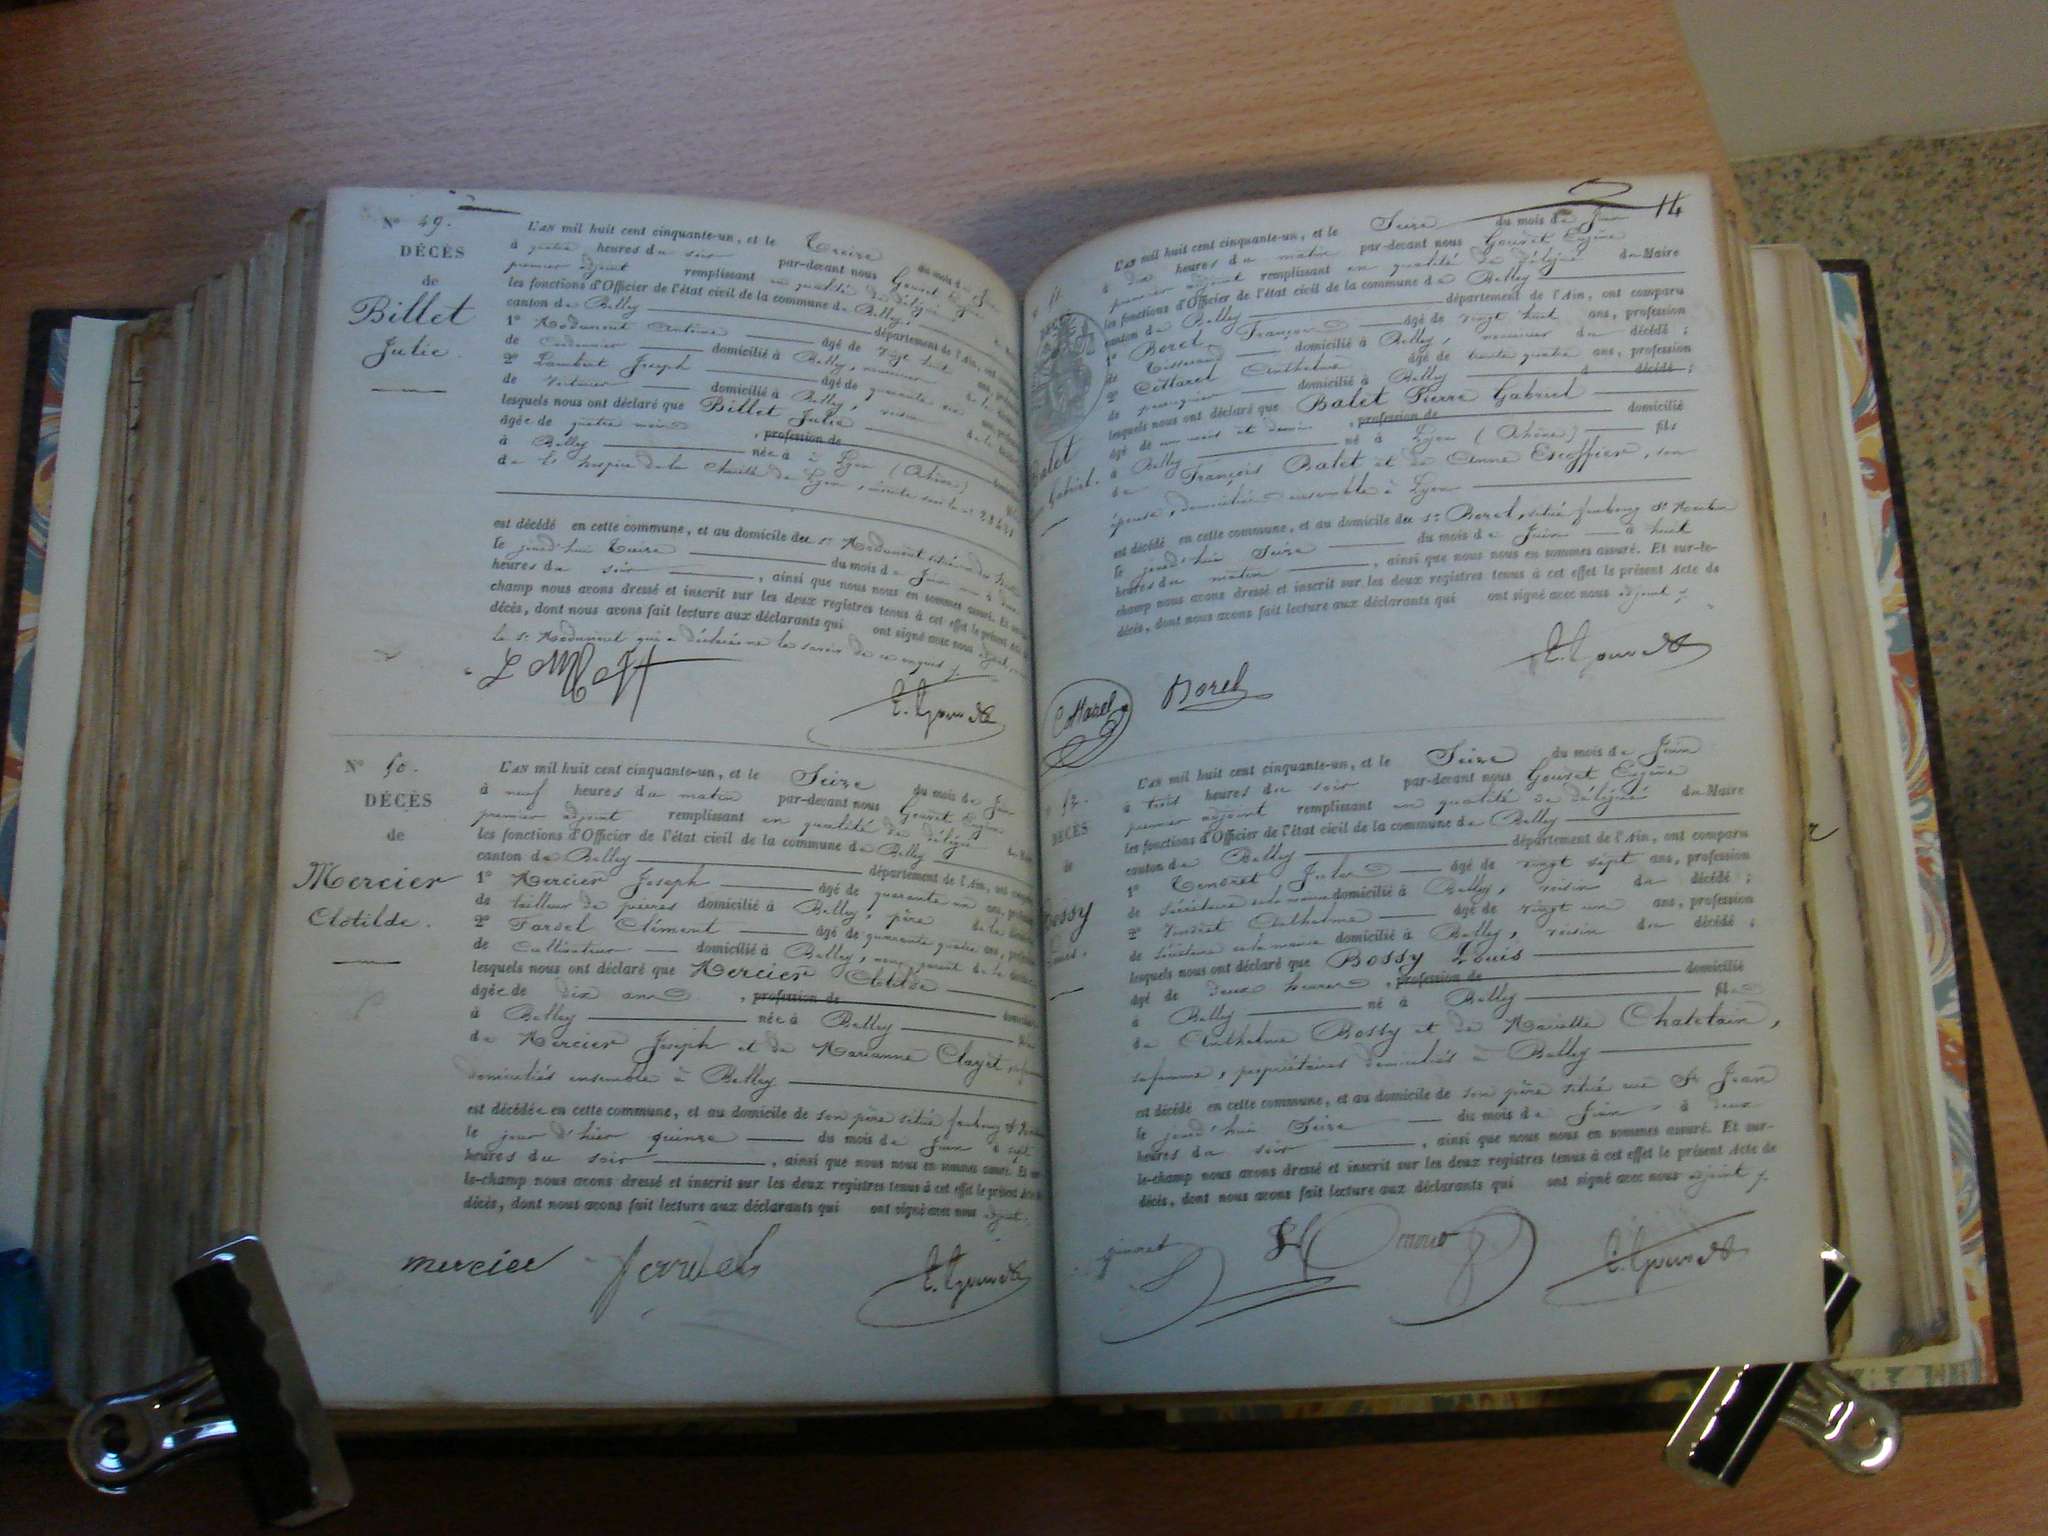 N° 49.
DÉCÈS
de
Billet
Julie.
L'AN mil huit cent cinquante-un, et le Treize du mois de Juin
à quatre heures du soir par-devant nous Gouvet Eugène
premier adjoint remplissant en qualité de délégué
les fonctions d'Officier de l'état civil de la commune de Belley,
canton de Belley département de l'Ain, ont comparu
1° Antoine âgé de vingt huit ans, profession
de domicilié à Belley,
2° Lambert Joseph âgé de quarante ans, profession
de domicilié à Belley, voisin de la
lesquels nous ont déclaré que Billet Julie
âgée de quatre mois, profession de
à Belley née à Lyon (Rhône)
de l'hospice de la Charité de Lyon, inscrite sous le n°
est décédé en cette commune, et au domicile du Sr
le jourd'hui Treize du mois de Juin à
heures du soir, ainsi que nous nous en sommes assuré. Et sur-le-
champ nous avons dressé et inscrit sur les deux registres tenus à cet effet le présent Acte de
décès, dont nous avons fait lecture aux déclarants qui ont signé avec nous adjoint,
le Sr qui a déclaré ne le savoir de ce enquis
E. Gouvet
N° 50.
DÉCÈS
de
Mercier
Clotilde.
L'AN mil huit cent cinquante-un, et le Seize du mois de Juin
à neuf heures du matin par-devant nous Gouvet Eugène
premier adjoint remplissant en qualité de délégué du Maire
les fonctions d'Officier de l'état civil de la commune de Belley
canton de Belley département de l'Ain, ont comparu
1° Mercier Joseph âgé de quarante un ans, profession
de tailleur de pierres domicilié à Belley, père de la
2° Clément âgé de quarante quatre ans, profession
de Cultivateur domicilié à Belley, non parent de la
lesquels nous ont déclaré que Mercier Clotilde
âgée de dix ans, profession de
à Belley née à Belley
de Mercier Joseph et de Marianne Clayet,
domiciliés ensemble à Belley
est décédée en cette commune, et au domicile de son père situé faubourg St
le jour d'hier quinze du mois de Juin à sept
heures du soir, ainsi que nous nous en sommes assuré. Et sur-
le-champ nous avons dressé et inscrit sur les deux registres tenus à cet effet le présent Acte de
décès, dont nous avons fait lecture aux déclarants qui ont signé avec nous adjoint.
mercier
E. Gouvet
14
51
Balet
Gabriel.
L'AN mil huit cent cinquante-un, et le Seize du mois de Juin
à dix heures du matin par-devant nous Gouvet Eugène
premier adjoint remplissant en qualité de délégué du Maire
les fonctions d'Officier de l'état civil de la commune de Belley
canton de Belley département de l'Ain, ont comparu
1° Borel, François âgé de vingt huit ans, profession
de Tisserand domicilié à Belley, nourricier du décédé ;
2° Cottarel Anthelme âgé de trente quatre ans, profession
de perruquier domicilié à Belley décédé ;
lesquels nous ont déclaré que Balet Pierre Gabriel
âgé de un mois et demi, profession de domicilié
à Belley né à Lyon (Rhône) fils
de François Balet et de Anne Escoffier, son
épouse, domiciliés ensemble à Lyon
est décédé en cette commune, et au domicile du Sr Borel, situé faubourg St Martin
le jourd'hui Seize du mois de Juin à huit
heures du matin, ainsi que nous nous en sommes assuré. Et sur-le-
champ nous avons dressé et inscrit sur les deux registres tenus à cet effet le présent Acte de
décès, dont nous avons fait lecture aux déclarants qui ont signé avec nous adjoint
E. Gouvet
Cottarel Borel
52.
DÉCÈS
de
Bossy
Louis.
L'AN mil huit cent cinquante-un, et le Seize du mois de Juin
à trois heures du soir par-devant nous Gouvet Eugène
premier adjoint remplissant en qualité de délégué du Maire
les fonctions d'Officier de l'état civil de la commune de Belley
canton de Belley département de l'Ain, ont comparu
1° Tendret Jules âgé de vingt sept ans, profession
de Sécrétaire de la mairie domicilié à Belley, voisin du décédé ;
2° Anthelme âgé de vingt un ans, profession
de Sécrétaire de la mairie domicilié à Belley, voisin du décédé ;
lesquels nous ont déclaré que Bossy Louis
âgé de deux heures, profession de domicilié
à Belley né à Belley fils
de Anthelme Bossy et de Mariette Chatelain,
sa femme, propriétaires domiciliés à Belley
est décédé en cette commune, et au domicile de son père situé rue St Jean
le jourd'hui Seize du mois de Juin à deux
heures du soir, ainsi que nous nous en sommes assuré. Et sur-
le-champ nous avons dressé et inscrit sur les deux registres tenus à cet effet le présent Acte de
décès, dont nous avons fait lecture aux déclarants qui ont signé avec nous adjoint
E. Gouvet